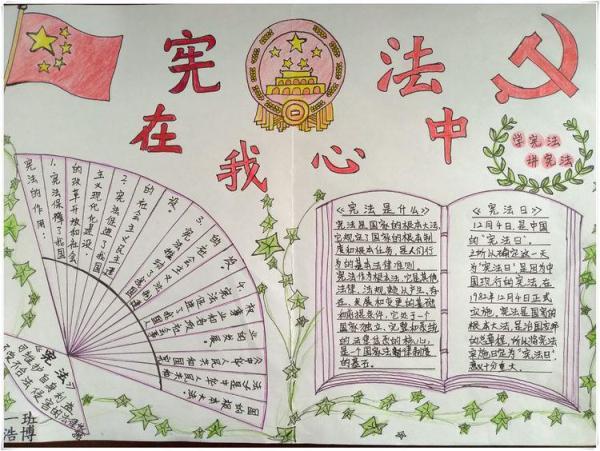 宪法
在我心中
学宪法
讲宪法
宪法的作用：
1. 宪法保障了我国
的改革开放和社会
主义现代化建设；
2. 宪法促进了我国
的社会主义民主建
设。
3. 宪法推动了我国
的社会主义法制建
4. 宪法促进了我国人
权事业和各项社会事
业的发展。
《中华人民共和国宪
法》是中华人民共和
国的根本大法。
《宪法》
《宪法是什么》
宪法是国家的根本大法,
它规定了国家的根本制
度和根本任务，是人们行
为的基本法律准则。
宪法作为根本法，它是其他
法律、法规赖以产生、存
在、发展和变更的基础
和前提条件，它处于一个
国家独立、完整和系统
的法律体系的核心，
是一个国家法律制度
的基石。
《宪法日》
12月4日，是中国
的“宪法日”。
之所以确定这一天
为“宪法日”，是因为中
国现行的宪法，在
1982年12月4日正式
实施，宪法是国家的
根本大法，是治国安邦
的总章程，所以将宪法
实施日定为“宪法日”，
意义十分重大。
一班
浩博